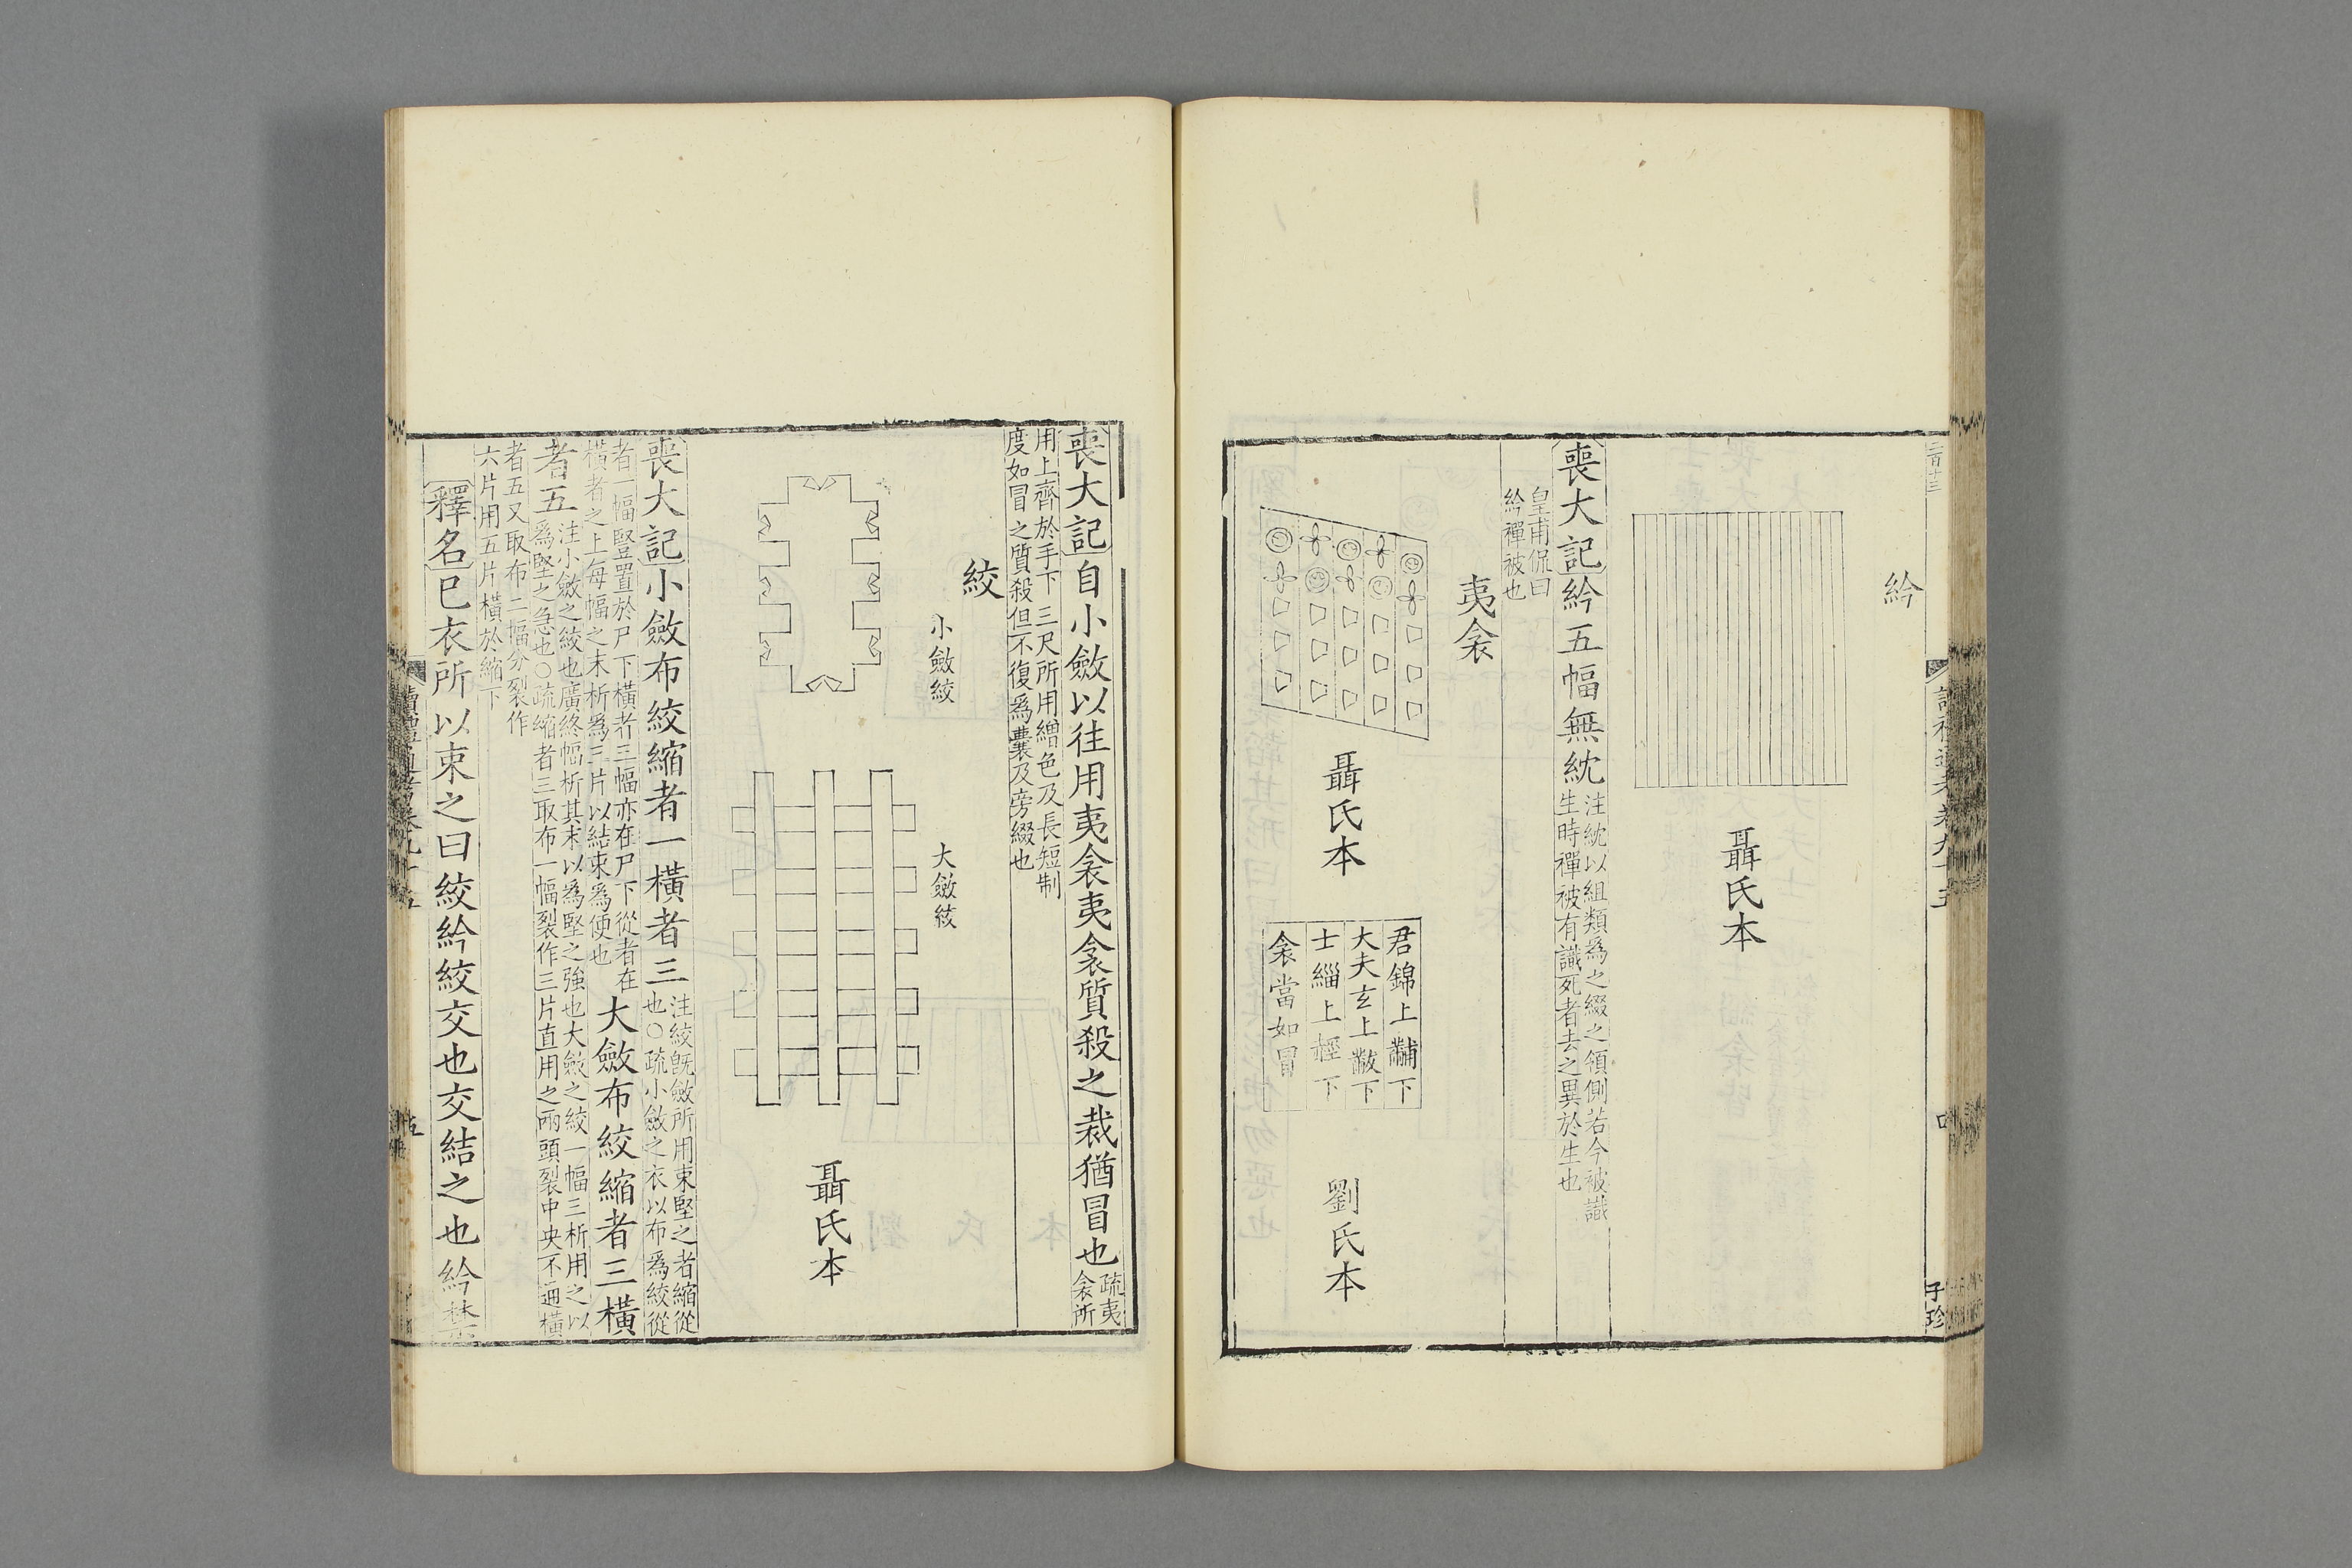 二百廿三
讀禮通考卷九十五
子珍
紟
聶氏本
喪大記紟五幅無紞
注紞以組類爲之綴之領側若今被識
生時襌被有識死者去之異於生也
皇甫侃曰
紟襌被也
夷衾
聶氏本
君錦上黼下
大夫玄上黻下
士緇上䞓下
衾當如冒
劉氏本
喪大記自小斂以往用夷衾夷衾質殺之裁猶冒也
疏夷
衾所
用上齊於手下三尺所用繒色及長短制
度如冒之質殺但不復爲囊及旁綴也
絞
小斂絞
大斂絞
聶氏本
喪大記小斂布絞縮者一橫者三
注絞旣斂所用束堅之者縮從
也○疏小斂之衣以布爲絞從
者一幅豎置於尸下橫者三幅亦在尸下從者在
橫者之上每幅之末析爲三片以結束爲便也
大斂布絞縮者三橫
者五
注小斂之絞也廣終幅析其末以爲堅之強也大斂之絞一幅三析用之以
爲堅之急也○疏縮者三取布一幅裂作三片直用之兩頭裂中央不通橫
者五又取布二幅分裂作
六片用五片橫於縮下
釋名巳衣所以束之曰絞紟絞交也交結之也紟禁
讀禮通考卷九十五